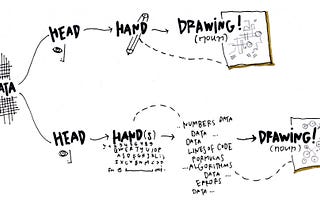 HEAD
HAND
DRAWING!
(noun)
ATA
HEAD
HAND(s)
QWERTYUIOP
..NUMBERS DATA
DATA ...
DATA
LINES OF CODE
FORMULAS
...ALGORITHMS
DATA ...
ERRORS
DATA...
DRAWING!
(noun)